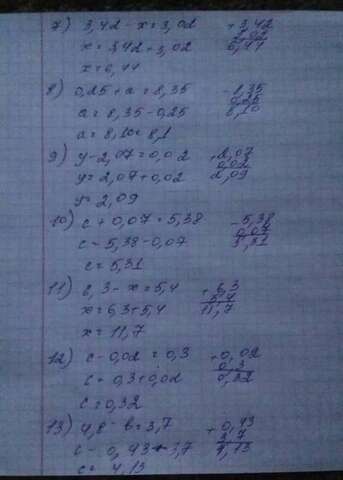 7) 3,42 - x = 3,02 + 3,42
x = 3,42 + 3,02 3,02
x = 6,44 6,44
8) 0,25 + a = 8,35 - 8,35
a = 8,35 - 0,25 0,25
a = 8,10 = 8,1 8,10
9) y - 2,07 = 0,02 + 2,07
y = 2,07 + 0,02 0,02
y = 2,09 2,09
10) c + 0,07 = 5,38 - 5,38
c = 5,38 - 0,07 0,07
c = 5,31 5,31
11) 6,3 - x = 5,4 + 6,3
x = 6,3 + 5,4 5,4
x = 11,7 11,7
12) c - 0,02 = 0,3 + 0,02
c = 0,3 + 0,02 0,3
c = 0,32 0,32
13) 4,8 - b = 3,7 + 0,43
c - 0,43 + 3,7 3,7
c = 4,13 4,13